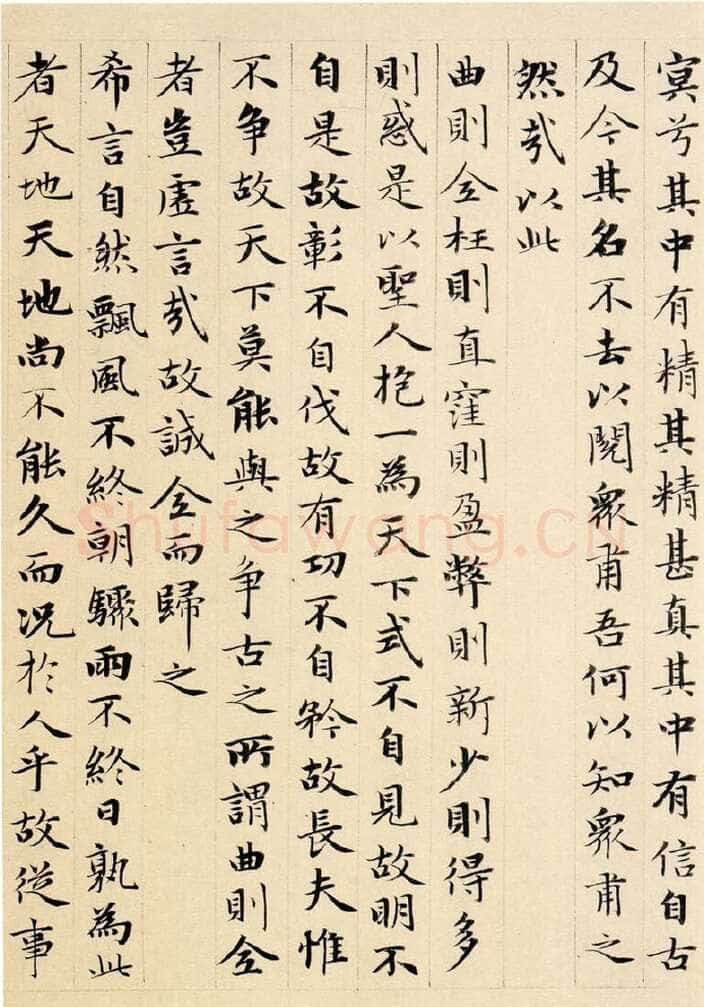 冥兮其中有精其精甚真其中有信自古
及今其名不去以閱衆甫吾何以知衆甫之
然哉以此
曲則全枉則直窪則盈弊則新少則得多
則惑是以聖人抱一為天下式不自見故明不
自是故彰不自伐故有功不自矜故長夫惟
不争故天下莫能與之争古之所謂曲則全
者豈虛言哉故誠全而歸之
希言自然飄風不終朝驟雨不終日孰為此
者天地天地尚不能久而況於人乎故從事
Shufawang.CN